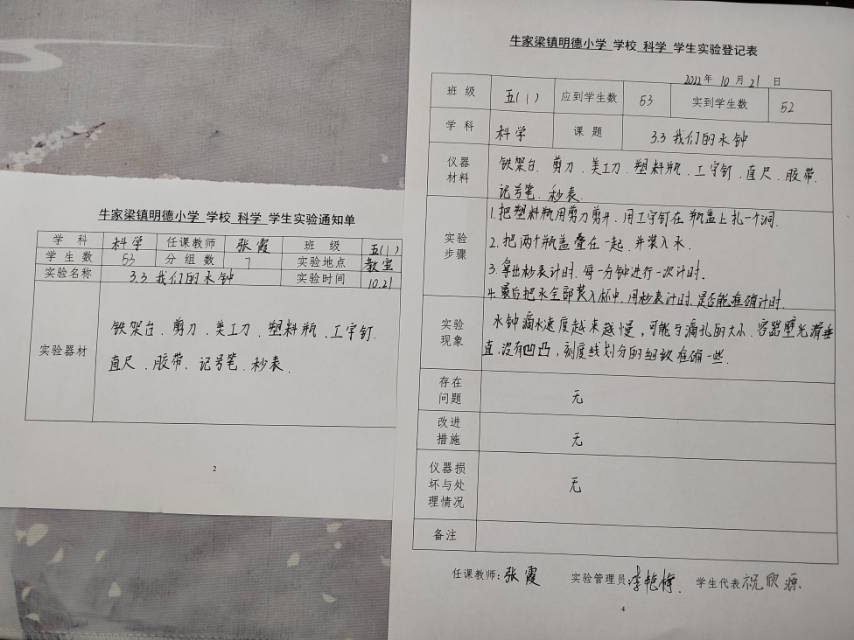 牛家梁镇明德小学 学校 科学 学生实验通知单
学科 科学 任课教师 张霞 班级 五(1)
学生数 53 分组数 7 实验地点 教室
实验名称 3.3 我们的水钟 实验时间 10.21
实验器材
铁架台、剪刀、美工刀、塑料瓶、工字钉、
直尺、胶带、记号笔、秒表.
2
牛家梁镇明德小学 学校 科学 学生实验登记表
2022年 10月 21日
班级 五(1) 应到学生数 53 实到学生数 52
学科 科学 课题 3.3 我们的水钟
仪器材料
铁架台、剪刀、美工刀、塑料瓶、工字钉、直尺、胶带、
记号笔、秒表.
实验步骤
1.把塑料瓶用剪刀剪开,用工字钉在瓶盖上扎一个洞.
2.把两个瓶盖叠在一起,并装入水.
3.拿出秒表计时.每一分钟进行一次计时.
4.最后把水全部装入杯中,用秒表计时.是否能准确计时.
实验现象
水钟滴水速度越来越慢,可能与滴孔的大小、容器壁光滑垂
直.没有凹凸,刻度线划分的细致准确一些.
存在问题 无
改进措施 无
仪器损坏与处理情况 无
备注
任课教师:张霞 实验管理员:李艳梅. 学生代表
4